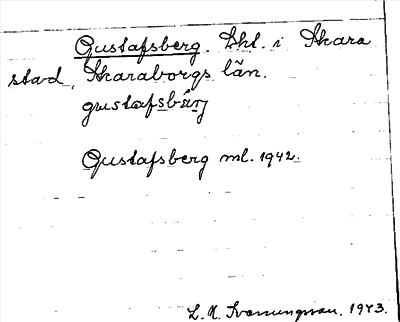 Gustafsberg. Lht. i Skara
stad, Skaraborgs län.
gustafsbärj
Gustafsberg ml. 1942.
1943.